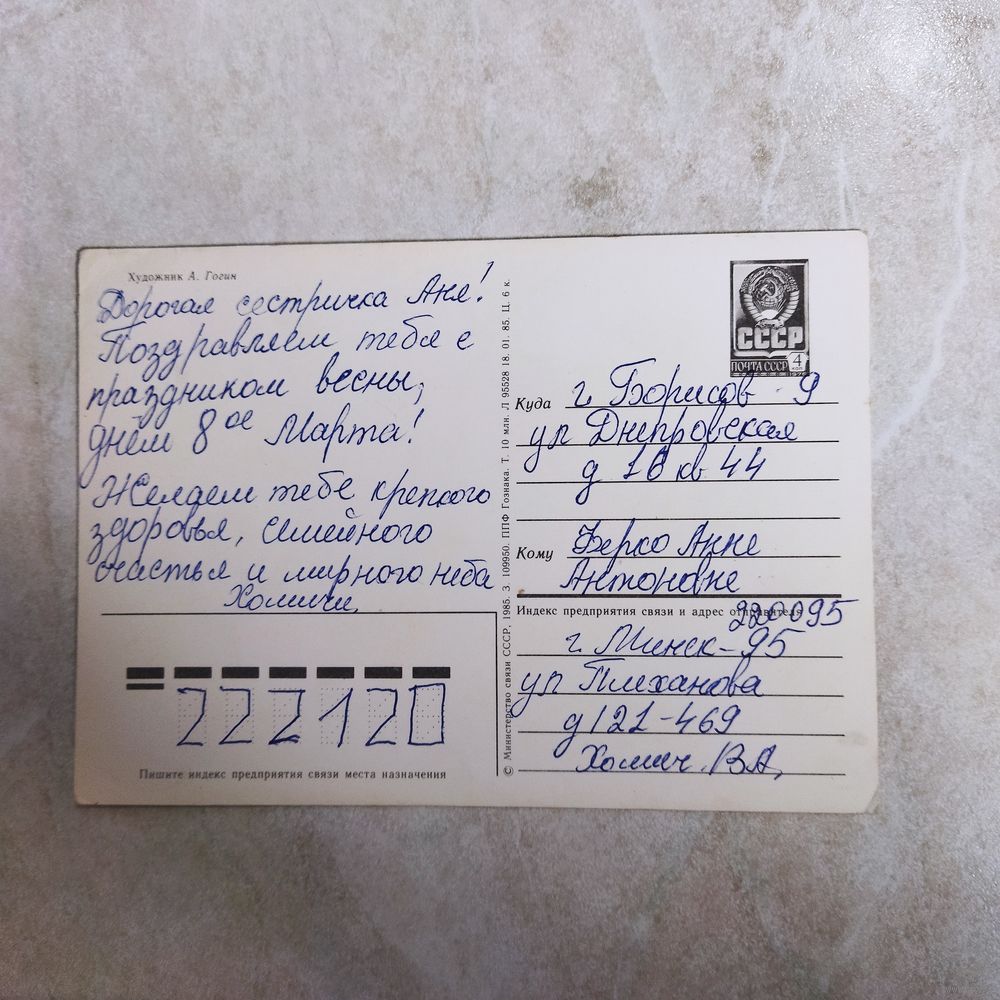 Художник А. Гогин
Дорогая сестричка Аня!
Поздравляем тебя с
праздником весны,
днём 8ое Марта!
Желаем тебе крепкого
здоровья, семейного
счастья и мирного неба
Хомичи.
222120
Пишите индекс предприятия связи места назначения
© Министерство связи СССР, 1985. З. 109950. ППФ Гознака. Т. 10 млн. Л 95528 18. 01. 85. Ц. 6 к.
СССР
ПОЧТА СССР
4
коп
Куда г. Борисов - 9
ул Днепровская
д 16 кв 44
Кому Берко Анне
Антоновне
Индекс предприятия связи и адрес отправителя
220095
г. Минск-95
ул Плеханова
д 121-469
Хомич В.А.